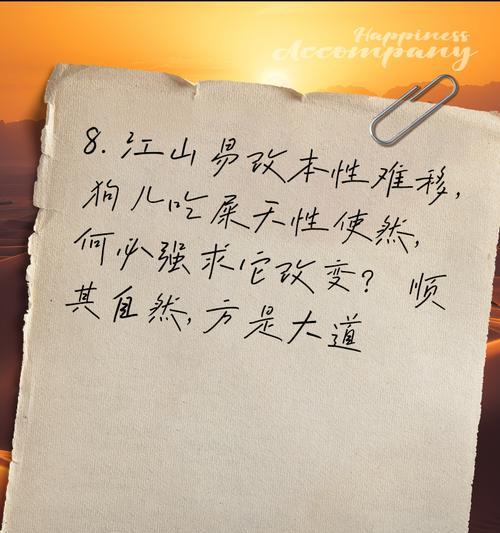 Happiness
Accompany
8. 江山易改本性难移,
狗儿吃屎天性使然,
何必强求它改变? 顺
其自然,方是大道